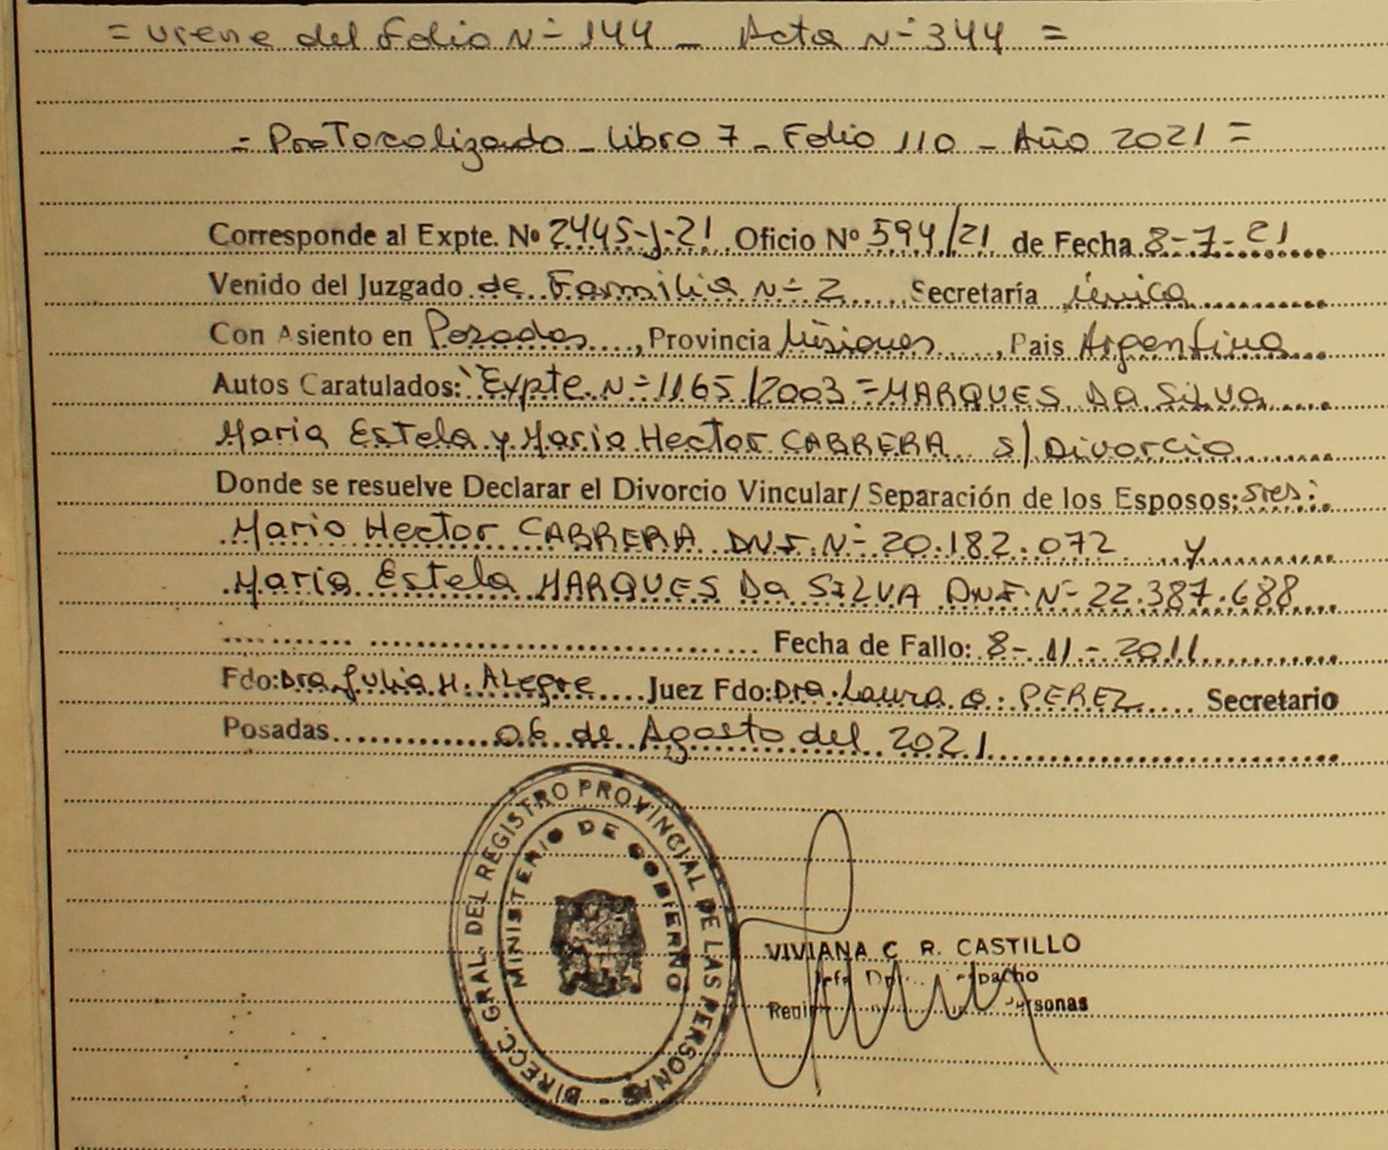 = viene del Folio Nº 144 - Acta Nº 344 =
= Protocolizado - Libro 7 - Folio 110 - Año 2021 =
Corresponde al Expte. Nº 2445-J-21 Oficio Nº 594/21 de Fecha 8-7-21
Venido del Juzgado de Familia Nº 2 Secretaría única
Con Asiento en Posadas, Provincia Misiones, Pais Argentina
Autos Caratulados: "Expte. Nº 1165/2003 = MARQUES Da SILVA
Maria Estela y Mario Hector CABRERA s/ Divorcio
Donde se resuelve Declarar el Divorcio Vincular/ Separación de los Esposos: Sres:
Mario Hector CABRERA DNI. Nº 20.182.072 y
Maria Estela MARQUES Da SILVA DNI. Nº 22.387.688
Fecha de Fallo: 8-11-2011
Fdo: Dra. Julia H. Alegre Juez Fdo: Dra. Laura O. PEREZ Secretario
Posadas 06 de Agosto del 2021
DIRECC. GRAL. DEL REGISTRO PROVINCIAL DE LAS PERSONAS
MINISTERIO DE GOBIERNO
VIVIANA C R. CASTILLO